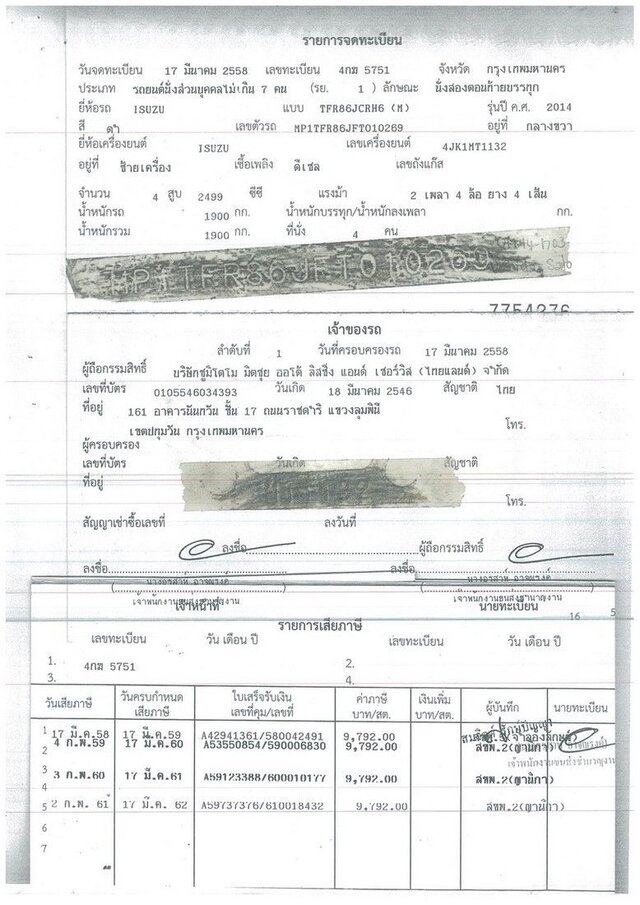 รายการจดทะเบียน
วันจดทะเบียน 17 มีนาคม 2558 เลขทะเบียน 4กฆ 5751 จังหวัด กรุงเทพมหานคร
ประเภท รถยนต์นั่งส่วนบุคคลไม่เกิน 7 คน (รย. 1 ) ลักษณะ นั่งสองตอนท้ายบรรทุก
ยี่ห้อรถ ISUZU แบบ TFR86JCRH6 (M) รุ่นปี ค.ศ. 2014
สี ดำ เลขตัวรถ MP1TFR86JFT010269 อยู่ที่ กลางขวา
ยี่ห้อเครื่องยนต์ ISUZU เลขเครื่องยนต์ 4JK1MT1132
อยู่ที่ ซ้ายเครื่อง เชื้อเพลิง ดีเซล เลขถังแก๊ส
จำนวน 4 สูบ 2499 ซีซี แรงม้า 2 เพลา 4 ล้อ ยาง 4 เส้น
น้ำหนักรถ 1900 กก. น้ำหนักบรรทุก/น้ำหนักลงเพลา กก.
น้ำหนักรวม 1900 กก. ที่นั่ง 4 คน
MP1TFR86JFT010269
7754276
เจ้าของรถ
ลำดับที่ 1 วันที่ครอบครองรถ 17 มีนาคม 2558
ผู้ถือกรรมสิทธิ์ บริษัทซูมิโตโม มิตซุย ออโต้ ลิสซิ่ง แอนด์ เซอร์วิส (ไทยแลนด์) จำกัด
เลขที่บัตร 0105546034393 วันเกิด 18 มีนาคม 2546 สัญชาติ ไทย
ที่อยู่ 161 อาคารนันทวัน ชั้น 17 ถนนราชดำริ แขวงลุมพินี
เขตปทุมวัน กรุงเทพมหานคร โทร.
ผู้ครอบครอง
เลขที่บัตร วันเกิด สัญชาติ
ที่อยู่
โทร.
สัญญาเช่าซื้อเลขที่ ลงวันที่
ลงชื่อ ผู้ถือกรรมสิทธิ์
ลงชื่อ ลงชื่อ
เจ้าหน้าที่ นายทะเบียน
16 5
รายการเสียภาษี
เลขทะเบียน วัน เดือน ปี เลขทะเบียน วัน เดือน ปี
1. 4กฆ 5751 2.
3. 4.
วันเสียภาษี วันครบกำหนดเสียภาษี ใบเสร็จรับเงิน เลขที่คุม/เลขที่ ค่าภาษี บาท/สต. เงินเพิ่ม บาท/สต. ผู้บันทึก นายทะเบียน
1 17 มี.ค.58 17 มี.ค.59 A42941361/580042491 9,792.00
2 4 ก.พ.59 17 มี.ค.60 A53550854/590006830 9,792.00 สขพ.2(ญานิกา)
3 3 ก.พ.60 17 มี.ค.61 A59123388/600010177 9,792.00 สขพ.2(ญานิกา)
4
5 2 ก.พ. 61 17 มี.ค. 62 A59737376/610018432 9,792.00 สขพ.2(ญานิกา)
6
7